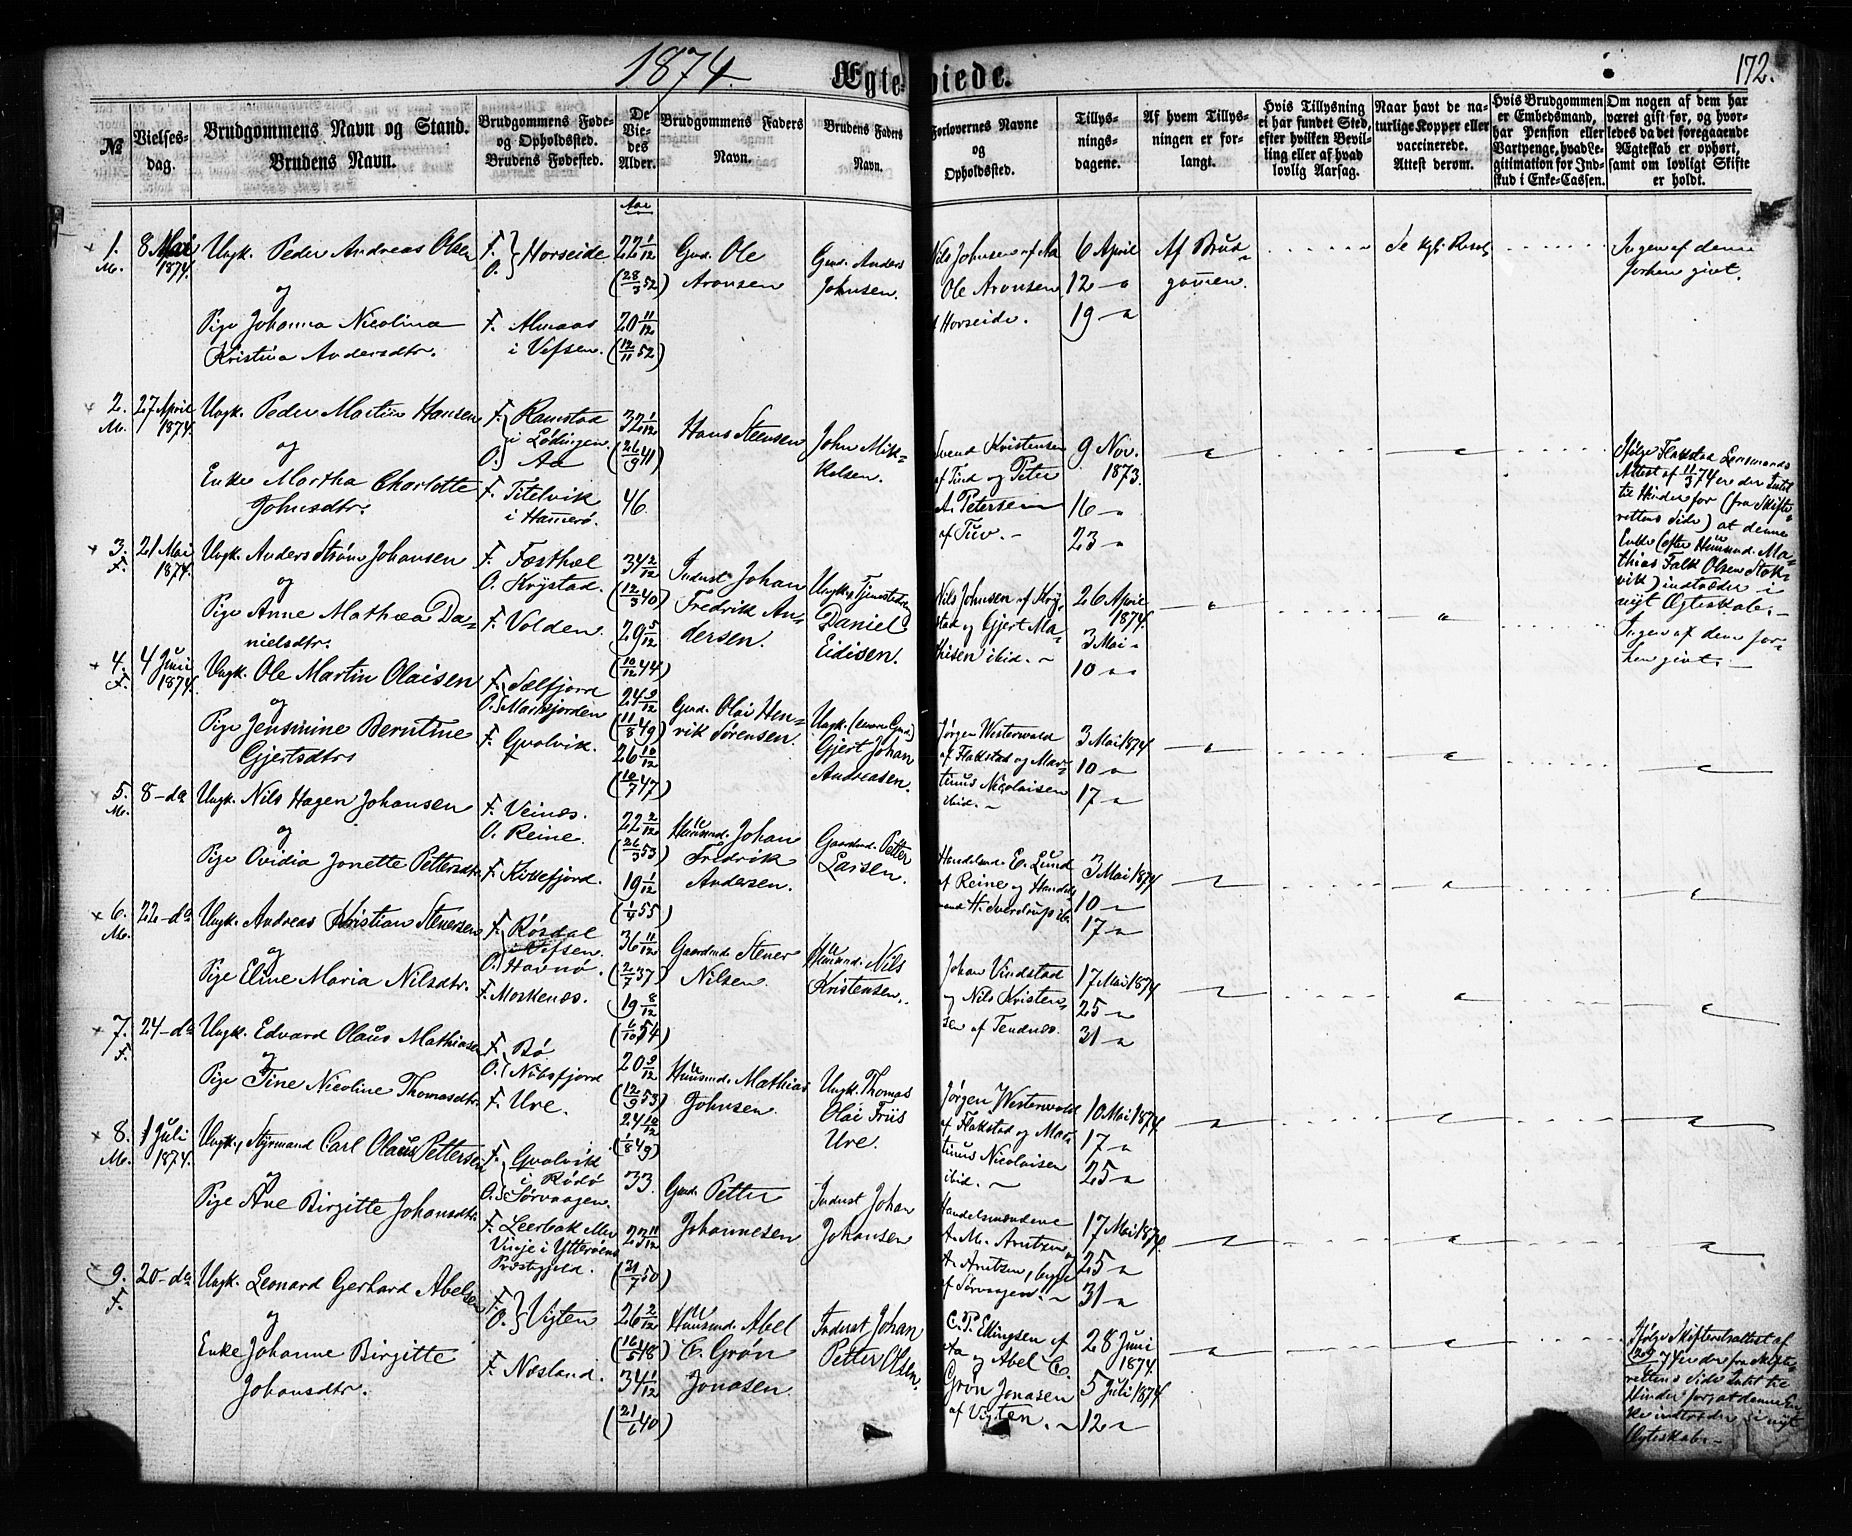 1874.
Ægteviede.
172.
№
Vielsesdag.
Brudgommens Navn og Stand.
Brudens Navn.
Brudgommens Føde-
og Opholdssted.
Brudens Fødested.
De
Vie-
des
Alder.
Brudgommens Faders
Navn.
Brudens Faders
Navn.
Forlovernes Navne
og
Opholdssted.
Tillys-
nings-
dagene.
Af hvem Tillys-
ningen er for-
langt.
Hvis Tillysning
ei har fundet Sted,
efter hvilken Bevil-
ling eller af hvad
lovlig Aarsag.
Naar havt de na-
turlige Kopper eller
vaccinerede.
Attest derom.
Hvis Brudgommen
er Embedsmand,
har Pension eller
Vartpenge, hvad Le-
gitimation for Ind-
skud i Enke-Cassen.
Om nogen af dem har
været gift før, og hvor-
ledes da det foregaaende
Ægteskab er ophørt,
samt om lovligt Skifte
er holdt.
Aar
1. M. 8 Mai 1874.
Ungk. Peder Andreas Olsen
og
Pige Johanna Nicolina
Kristina Andersdtr.
F. O. } Horseide
F. Almaas
i Vefsen.
22 1/12
(28/3 52)
20 11/12
(12/11 52)
Gmd. Ole
Aronsen
Gmd. Anders
Johnsen.
Nils Johnsen af Aa
Ole Aronsen
Horseide.
6 April
12 –
19 –
Af Brud-
gommen.
Se kgl. Resol.
Ingen af dem
forhen givt.
2. M. 27 April 1874.
Ungk. Peder Martin Hansen
og
Enke Martha Charlotte
Johnsdtr.
F. } Ramstad
i Lødingen
O. } Aa
F. Titelvik
i Hamerø.
32 1/12
(26/9 41)
46
Hans Steensen
John Mik-
kelsen.
Svend Kristensen
af Tind og Peter
A. Petersen
af Tuv. –
9 Nov.
1873.
16 –
23 –
Ifølge Flakstad Lensmands
Attest af 11/3 74 er der Intet
til Hinder for (fra Skifte-
rettens Side) at denne
Enke (efter Huusmd. Ma-
thias Falk Olsen Stok-
vik) indtræder i
nyt Ægteskab. –
3. F. 21 Mai 1874.
Ungk. Anders Strøm Johansen
og
Pige Anne Mathea Da-
nielsdtr.
F. Fæsthæl
O. Krystad.
F. Volden.
34 2/12
(12/3 40)
29 5/12
(10/12 44)
Inderst Johan
Fredrik An-
dersen.
Ungk., Tjenestedr.
Daniel
Eidisen.
Nils Johnsen af Kry-
stad og Gjert Ma-
thisen ibid. –
26 April
1874.
3 Mai –
10 –
Ingen af dem for-
hen givt. –
4. F. 4 Juni 1874.
Ungk. Ole Martin Olaisen
og
Pige Jensinine Berntine
Gjertsdtr
F. Sælfjord
O. Markfjorden
F. Gvalvik.
24 9/12
(11/8 49)
26 10/12
(16/7 47)
Gmd. Olai Hen-
rik Sørensen.
Ungk. (senere Gmd.)
Gjert Johan
Andreasen.
Jørgen Westerwald
af Flakstad og Mar-
tinus Nicolaisen
ibid. –
3 Mai 1874
10 –
17 –
5. M. 8 – da
Ungk. Nils Hagen Johansen
og
Pige Ovidia Jonette Pettersdtr.
F. Veinæs.
O. Reine.
F. Kirkefjord.
22 2/12
(26/3 53)
19 1/12
(1/4 55)
Huusmd. Johan
Fredrik
Andersen.
Gaardmd. Petter
Larsen.
Handelsmd. E. Lund
af Reine og Handels-
mand H. Sverdrup ib.
3 Mai 1874
10 –
17 –
6. M. 22 – da
Ungk. Andreas Kristian Stenersen
og
Pige Eline Maria Nilsdtr.
F. Røsdal
i Vefsen.
O. Havnø.
F. Moskenæs.
36 11/12
(2/7 37)
19 8/12
(6/10 54)
Gaardmd. Stener
Nilsen
Huusmd. Nils
Kristensen.
Johan Vindstad
og Nils Kristen-
sen af Tendnæs.
17 Mai 1874
25 –
31 –
7. F. 24 – da
Ungk. Edvard Olaus Mathiasen
og
Pige Tine Nicoline Thomasdtr.
F. Bø
O. Nubsfjord
F. Ure.
20 9/12
(12/9 53)
24 10/12
(1/8 49)
Huusmd. Mathias
Johnsen
Ungk. Thomas
Olai Friis
Ure.
Jørgen Westerwald
af Flakstad og Mar-
tinus Nicolaisen
ibid. –
10 Mai 1874
17 –
25 –
8. M. 1 Juli 1874.
Ungk., Styrmand Carl Olaus Pettersen
og
Pige Ane Birgitte Johansdtr.
F. Gvalvik
i Rødø
O. Sørvaagen.
F. Leerbak eller
Vinje i Ytterøens
Præstegjeld.
33
23 11/12
(31/7 50)
Gmd. Petter
Johannesen
Inderst Johan
Johansen
Handelsmændene
A. M. Arntzen og
A. Arntzen, begge
af Sørvaagen. –
17 Mai 1874.
25 –
31 –
9. F. 20 – da
Ungk. Leonard Gerhard Abelsen
og
Enke Johanne Birgitte
Johansdtr.
F. O. } Vigten
F. Næsland.
26 2/12
(16/5 48)
34 1/12
(21/6 40)
Huusmd. Abel
C. Grøn
Jonasen
Inderst Johan
Petter Olsen.
C. P. Ellingsen af
Aa og Abel C.
Grøn Jonasen
af Vigten. –
28 Juni
1874.
5 Juli 1874
12 –
Ifølge Skifteretsattest af
20/7 74 er der fra Skifte-
rettens Side Intet til
Hinder for, at denne En-
ke indtræder i nyt
Ægteskab. –